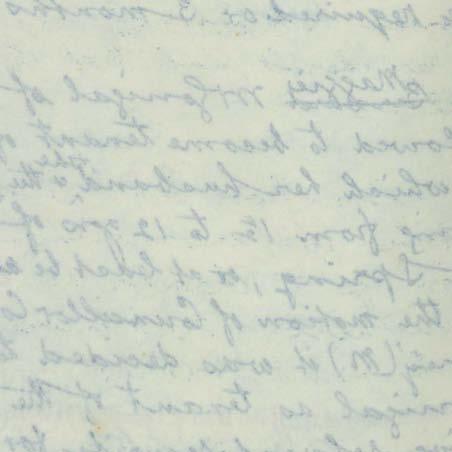 required or 3 months
Maggie McGonigal of
lowed to become tenant of
which her husband, & the
ng from 1½ to 12 yrs of
Spring, or at least be
the motion of Councillor
(M) it was decided
nigal as tenant of the